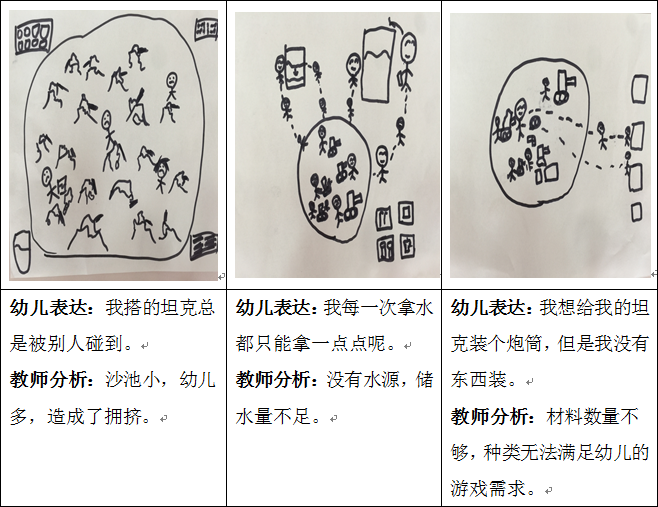 幼儿表达：我搭的坦克总
是被别人碰到。
教师分析：沙池小，幼儿
多，造成了拥挤。
幼儿表达：我每一次拿水
都只能拿一点点呢。
教师分析：没有水源，储
水量不足。
幼儿表达：我想给我的坦
克装个炮筒，但是我没有
东西装。
教师分析：材料数量不
够，种类无法满足幼儿的
游戏需求。